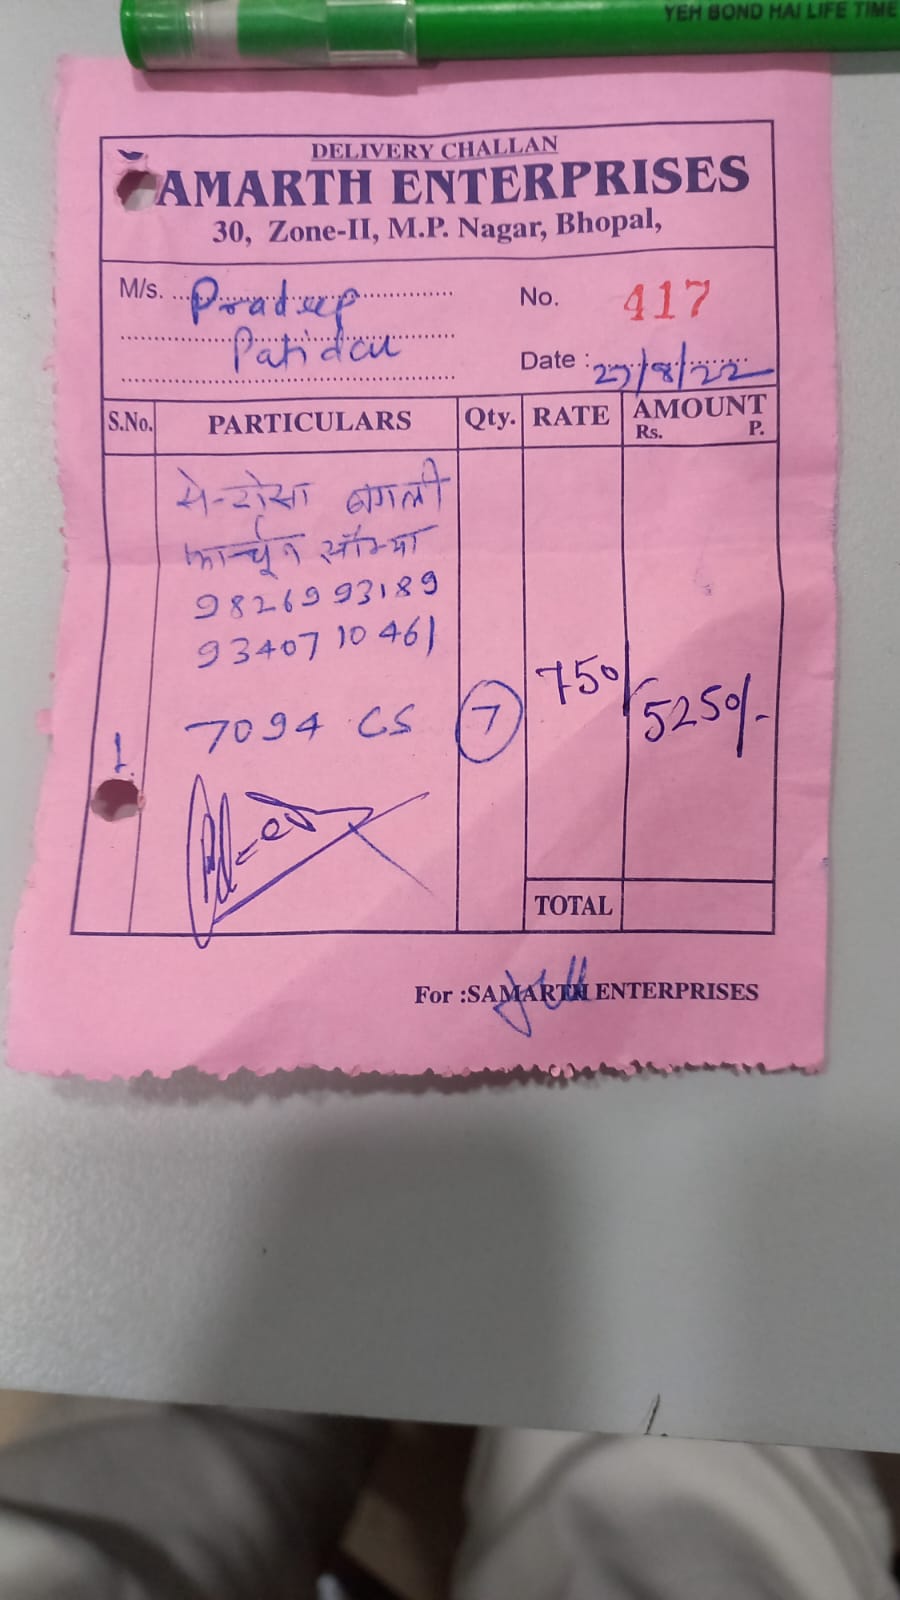 YEH BOND HAI LIFE TIME
DELIVERY CHALLAN
AMARTH ENTERPRISES
30, Zone-II, M.P. Nagar, Bhopal,
M/s. Pradeep
Patidar
No. 417
Date : 27/8/22
S.No. PARTICULARS Qty. RATE AMOUNT
Rs. P.
बंगली
फार्च्यून सौम्या
9826993189
9340710461
1. 7094 CS 7 750/ 5250/-
TOTAL
For :SAMARTH ENTERPRISES